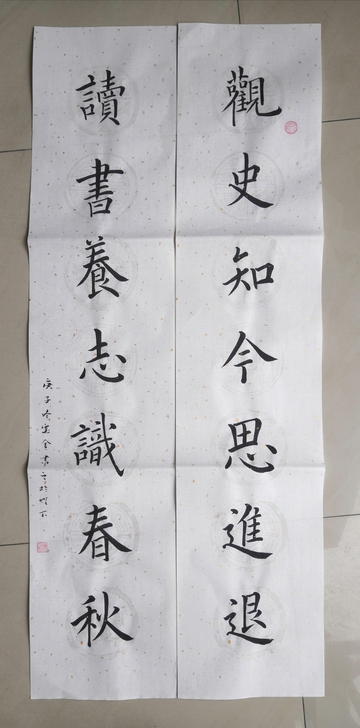 觀史知今思進退
讀書養志識春秋
庚子冬